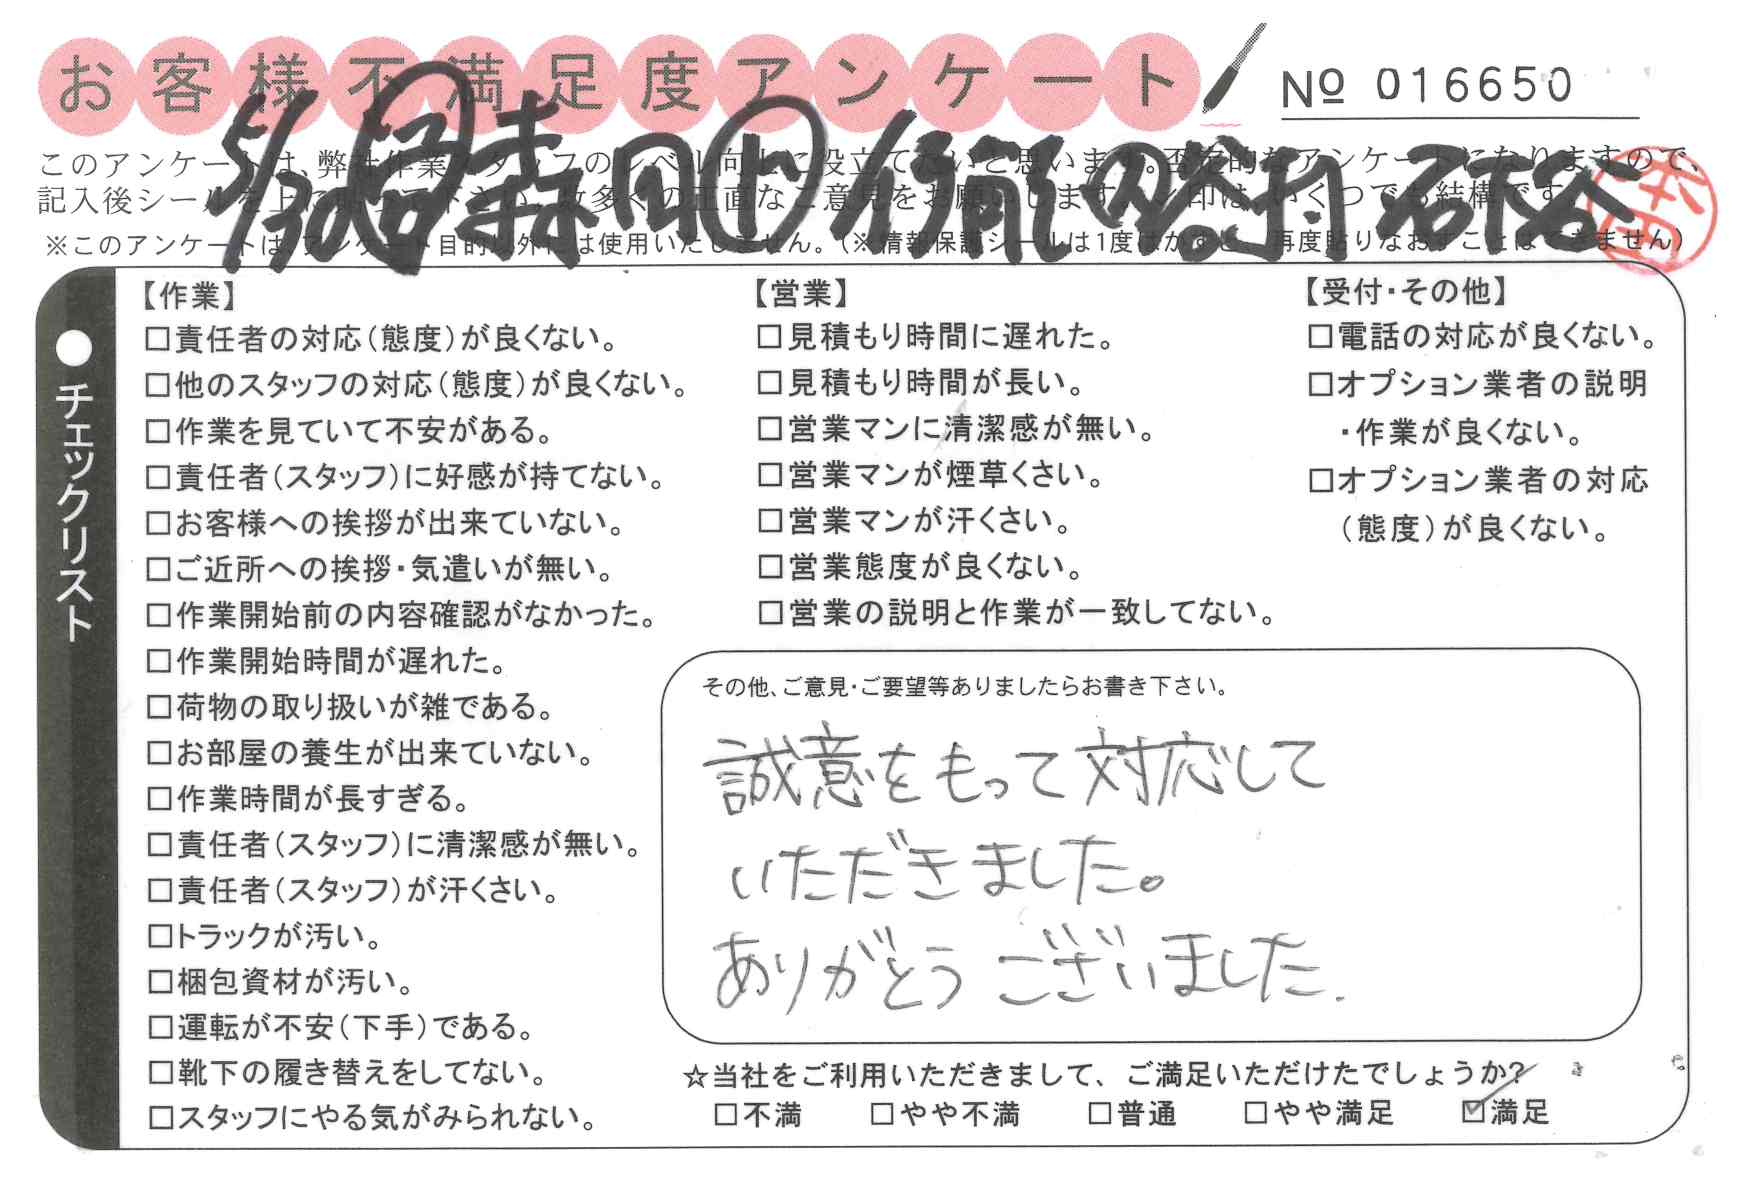 お客様不満足度アンケート
Nº 016650
5/30
このアンケートは、弊社作業スタッフのレベル向上に役立てたいと思います。否定的なアンケートになりますので、
記入後シールを上に貼って下さい。数多くの正直なご意見をお願いします。✓印は、いくつでも結構です。
※このアンケートは、アンケート目的以外には使用いたしません。(※情報保護シールは1度はがすと、再度貼りなおすことはできません)
●チェックリスト
【作業】
□責任者の対応(態度)が良くない。
□他のスタッフの対応(態度)が良くない。
□作業を見ていて不安がある。
□責任者(スタッフ)に好感が持てない。
□お客様への挨拶が出来ていない。
□ご近所への挨拶・気遣いが無い。
□作業開始前の内容確認がなかった。
□作業開始時間が遅れた。
□荷物の取り扱いが雑である。
□お部屋の養生が出来ていない。
□作業時間が長すぎる。
□責任者(スタッフ)に清潔感が無い。
□責任者(スタッフ)が汗くさい。
□トラックが汚い。
□梱包資材が汚い。
□運転が不安(下手)である。
□靴下の履き替えをしてない。
□スタッフにやる気がみられない。
【営業】
□見積もり時間に遅れた。
□見積もり時間が長い。
□営業マンに清潔感が無い。
□営業マンが煙草くさい。
□営業マンが汗くさい。
□営業態度が良くない。
□営業の説明と作業が一致してない。
【受付・その他】
□電話の対応が良くない。
□オプション業者の説明
・作業が良くない。
□オプション業者の対応
(態度)が良くない。
その他、ご意見・ご要望等ありましたらお書き下さい。
誠意をもって対応して
いただきました。
ありがとうございました.
☆当社をご利用いただきまして、ご満足いただけたでしょうか?
□不満 □やや不満 □普通 □やや満足 ☑満足